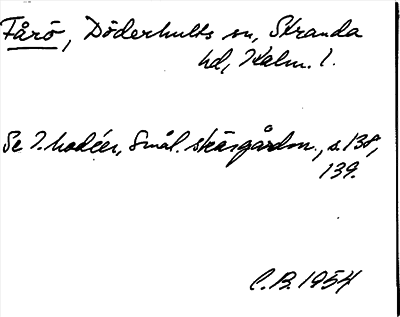 Fårö, Döderhults sn, Stranda
hd, Kalm. l.
Se I. Modéer, Smål. skärgårdsn., s. 138,
139.
C.B. 1954